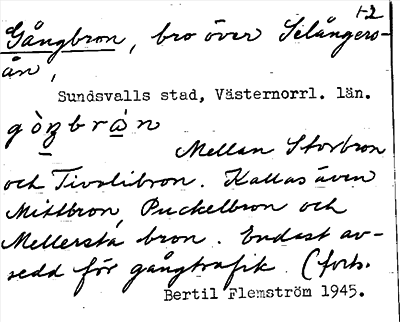 1-2
Gångbron, bro över Selångers-
ån,
Sundsvalls stad, Västernorrl. län.
gòŋbrán
Mellan Storbron
och Tivolibron. Kallas även
Mittbron, Puckelbron och
Mellersta bron. Endast av-
sedd för gångtrafik. (forts.
Bertil Flemström 1945.